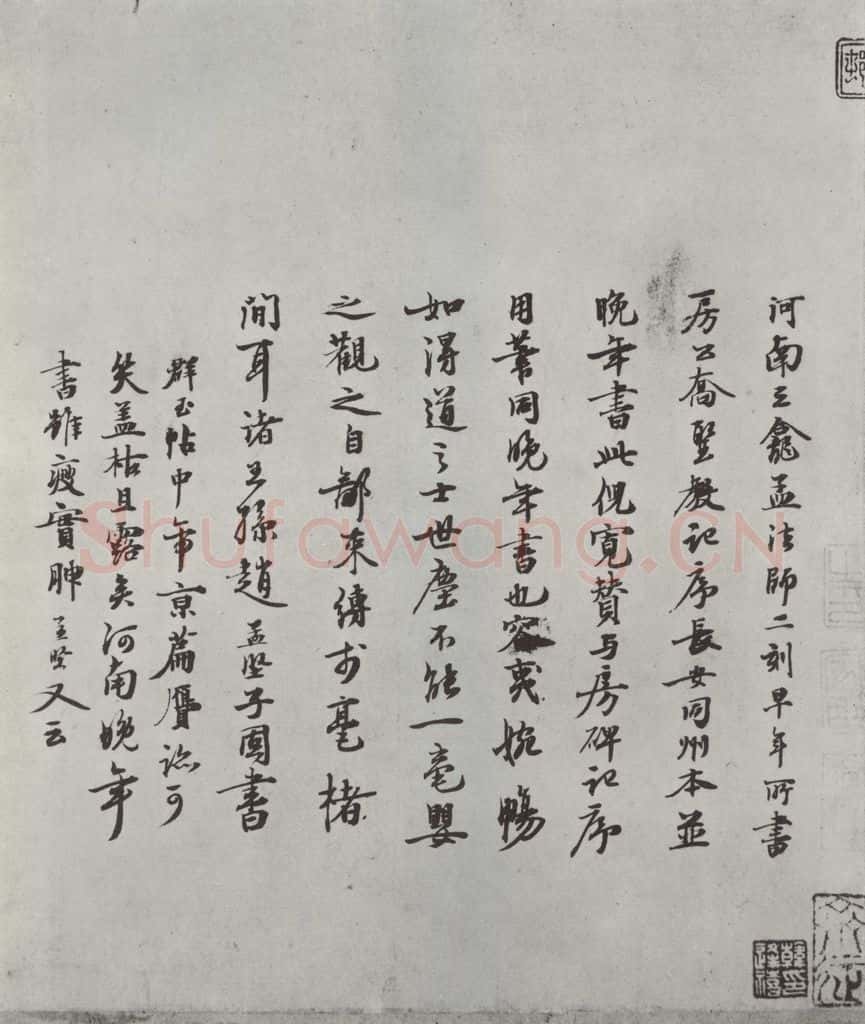 河南三龕孟法師二刻早年所書
房公喬聖教記序長安同州本並
晚年書此倪寬贊与房碑記序
用筆同晚年書也容夷婉暢
如得道之士世塵不能一毫嬰
之觀之自鄙束縛於毫楮
間耳諸王孫趙孟堅子固書
群玉帖中帝京篇贗跡可
笑盖枯且露矣河南晚年
書雖瘦實腴孟堅又云
韓逢禧印
Shufawang.CN